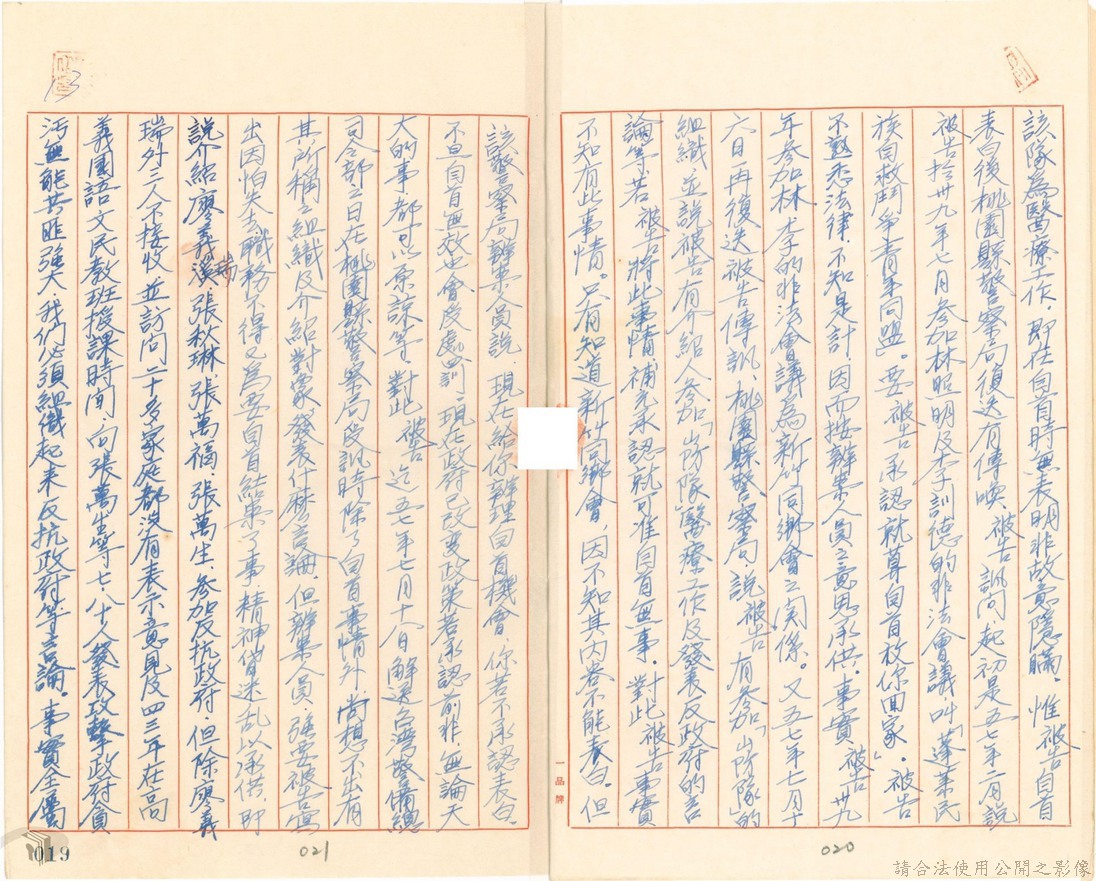 該隊為醫療工作，即在自首時無表明非故意隱瞞。惟被告自首
表白後桃園縣警察局復送有傳喚被告訊問起初是五七年二月說
被告於卅九年七月參加林照明及李訓德的非法會議叫「蓬萊民
族自救鬥爭青年同盟」。要被告承認就算自首放你回家」。被告
不熟悉法律，不知是計，因而按辦案人員之意思承供。事實被告卅九
年參加林、李的非法會議為新竹同鄉會之関係。又五七年七月十
六日再復送被告傳訊，桃園縣警察局說被告有參加「山防隊」的
組織並說被告有介紹人參加「山防隊」醫療工作及發表反政府的言
論等，若被告將此事情補充承認就可准自首無事。對此被告事實
不知有此事情。只有知道新竹同鄉會，因不知其內容不能表白。但
該警察局辦案人員說：現在給你辦理自首機會，你若不承認表白，
不但自首無效也會反處罰，現在政府已改變政策若承認前非，無論天
大的事，都可以原諒等，對此被告迄五七年七月十八日解送台灣警備總
司令部，日在桃園縣警察局反訊時除了自首事情外，尚想不出有
其所稱之組織及介紹對象發表什麼言論，但辦案人員，強要被告寫
出因怕失去職務不得已為要自首結案了事精神昏迷乱以承供，即
說介紹廖義溪、張秋琳、張萬福、張萬生，參加反抗政府，但除廖義
瑞外三人不接收，並訪問二十多家庭都沒有表示意見及四三年在高
義國語文民教班授課時間，向張萬生等七、八十人發表攻擊政府貪
污無能共匪強大，我們必須組織起來反抗政府等言論。事實全屬
一品牌
019
021
020
請合法使用公開之影像